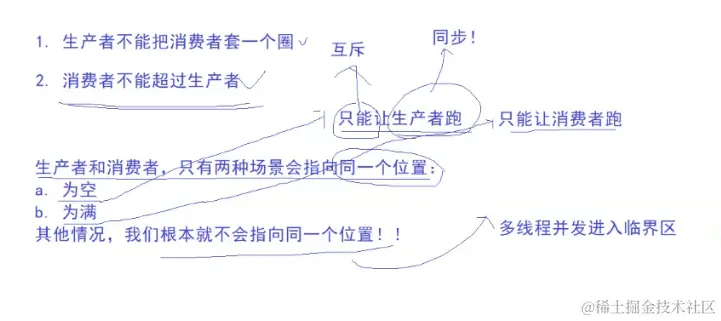 1. 生产者不能把消费者套一个圈
同步！
互斥
2. 消费者不能超过生产者
只能让生产者跑
只能让消费者跑
生产者和消费者，只有两种场景会指向同一个位置：
a. 为空
b. 为满
其他情况，我们根本就不会指向同一个位置！！
多线程并发进入临界区
@稀土掘金技术社区